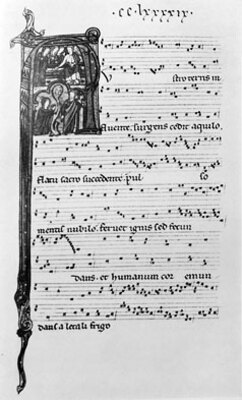 ·cc·lxxxxix·
stro terris in
fluente. surgens cedit aquilo.
flatu sacro succedente. pul so
mentis nubilo. fervet ignis sed fecun
dans. et humanum cor emun
dans a letali frigo